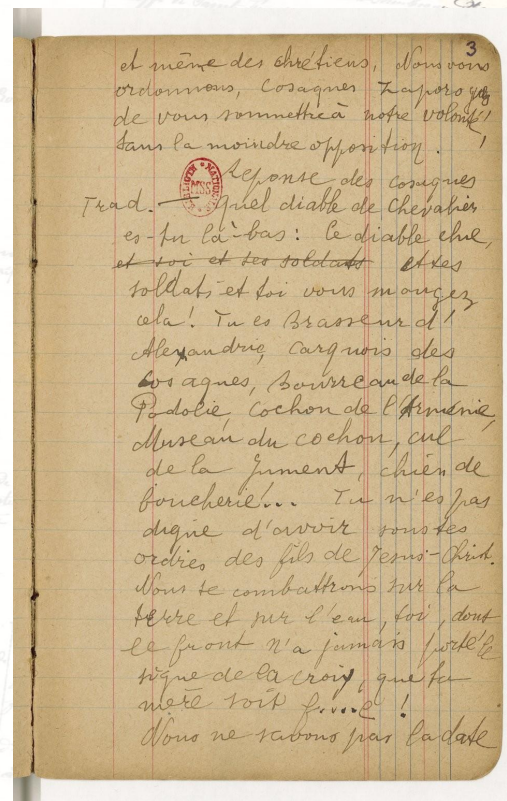 3
et même des chrétiens, Nous vous
ordonnons, Cosaques Zaporogues
de vous sommettre à notre volonté!
sans la moindre opposition.
Réponse des cosaques
Trad. — Quel diable de Chevalier
es-tu là-bas: Ce diable chie,
et toi et tes soldats et tes
soldats et toi vous mangez
cela! Tu es Brasseur d'
Alexandrie, Carquois des
Cosaques, Bourreau de la
Podolie, Cochon de l'Arménie,
Museau du cochon, cul
de la Jument, chien de
boucherie!... Tu n'es pas
digne d'avoir sous tes
ordres des fils de Jésus-Christ.
Nous te combattrons sur la
terre et sur l'eau, toi, dont
le front n'a jamais porté le
signe de la croix, que ta
mère soit f....e !
Nous ne savons pas la date